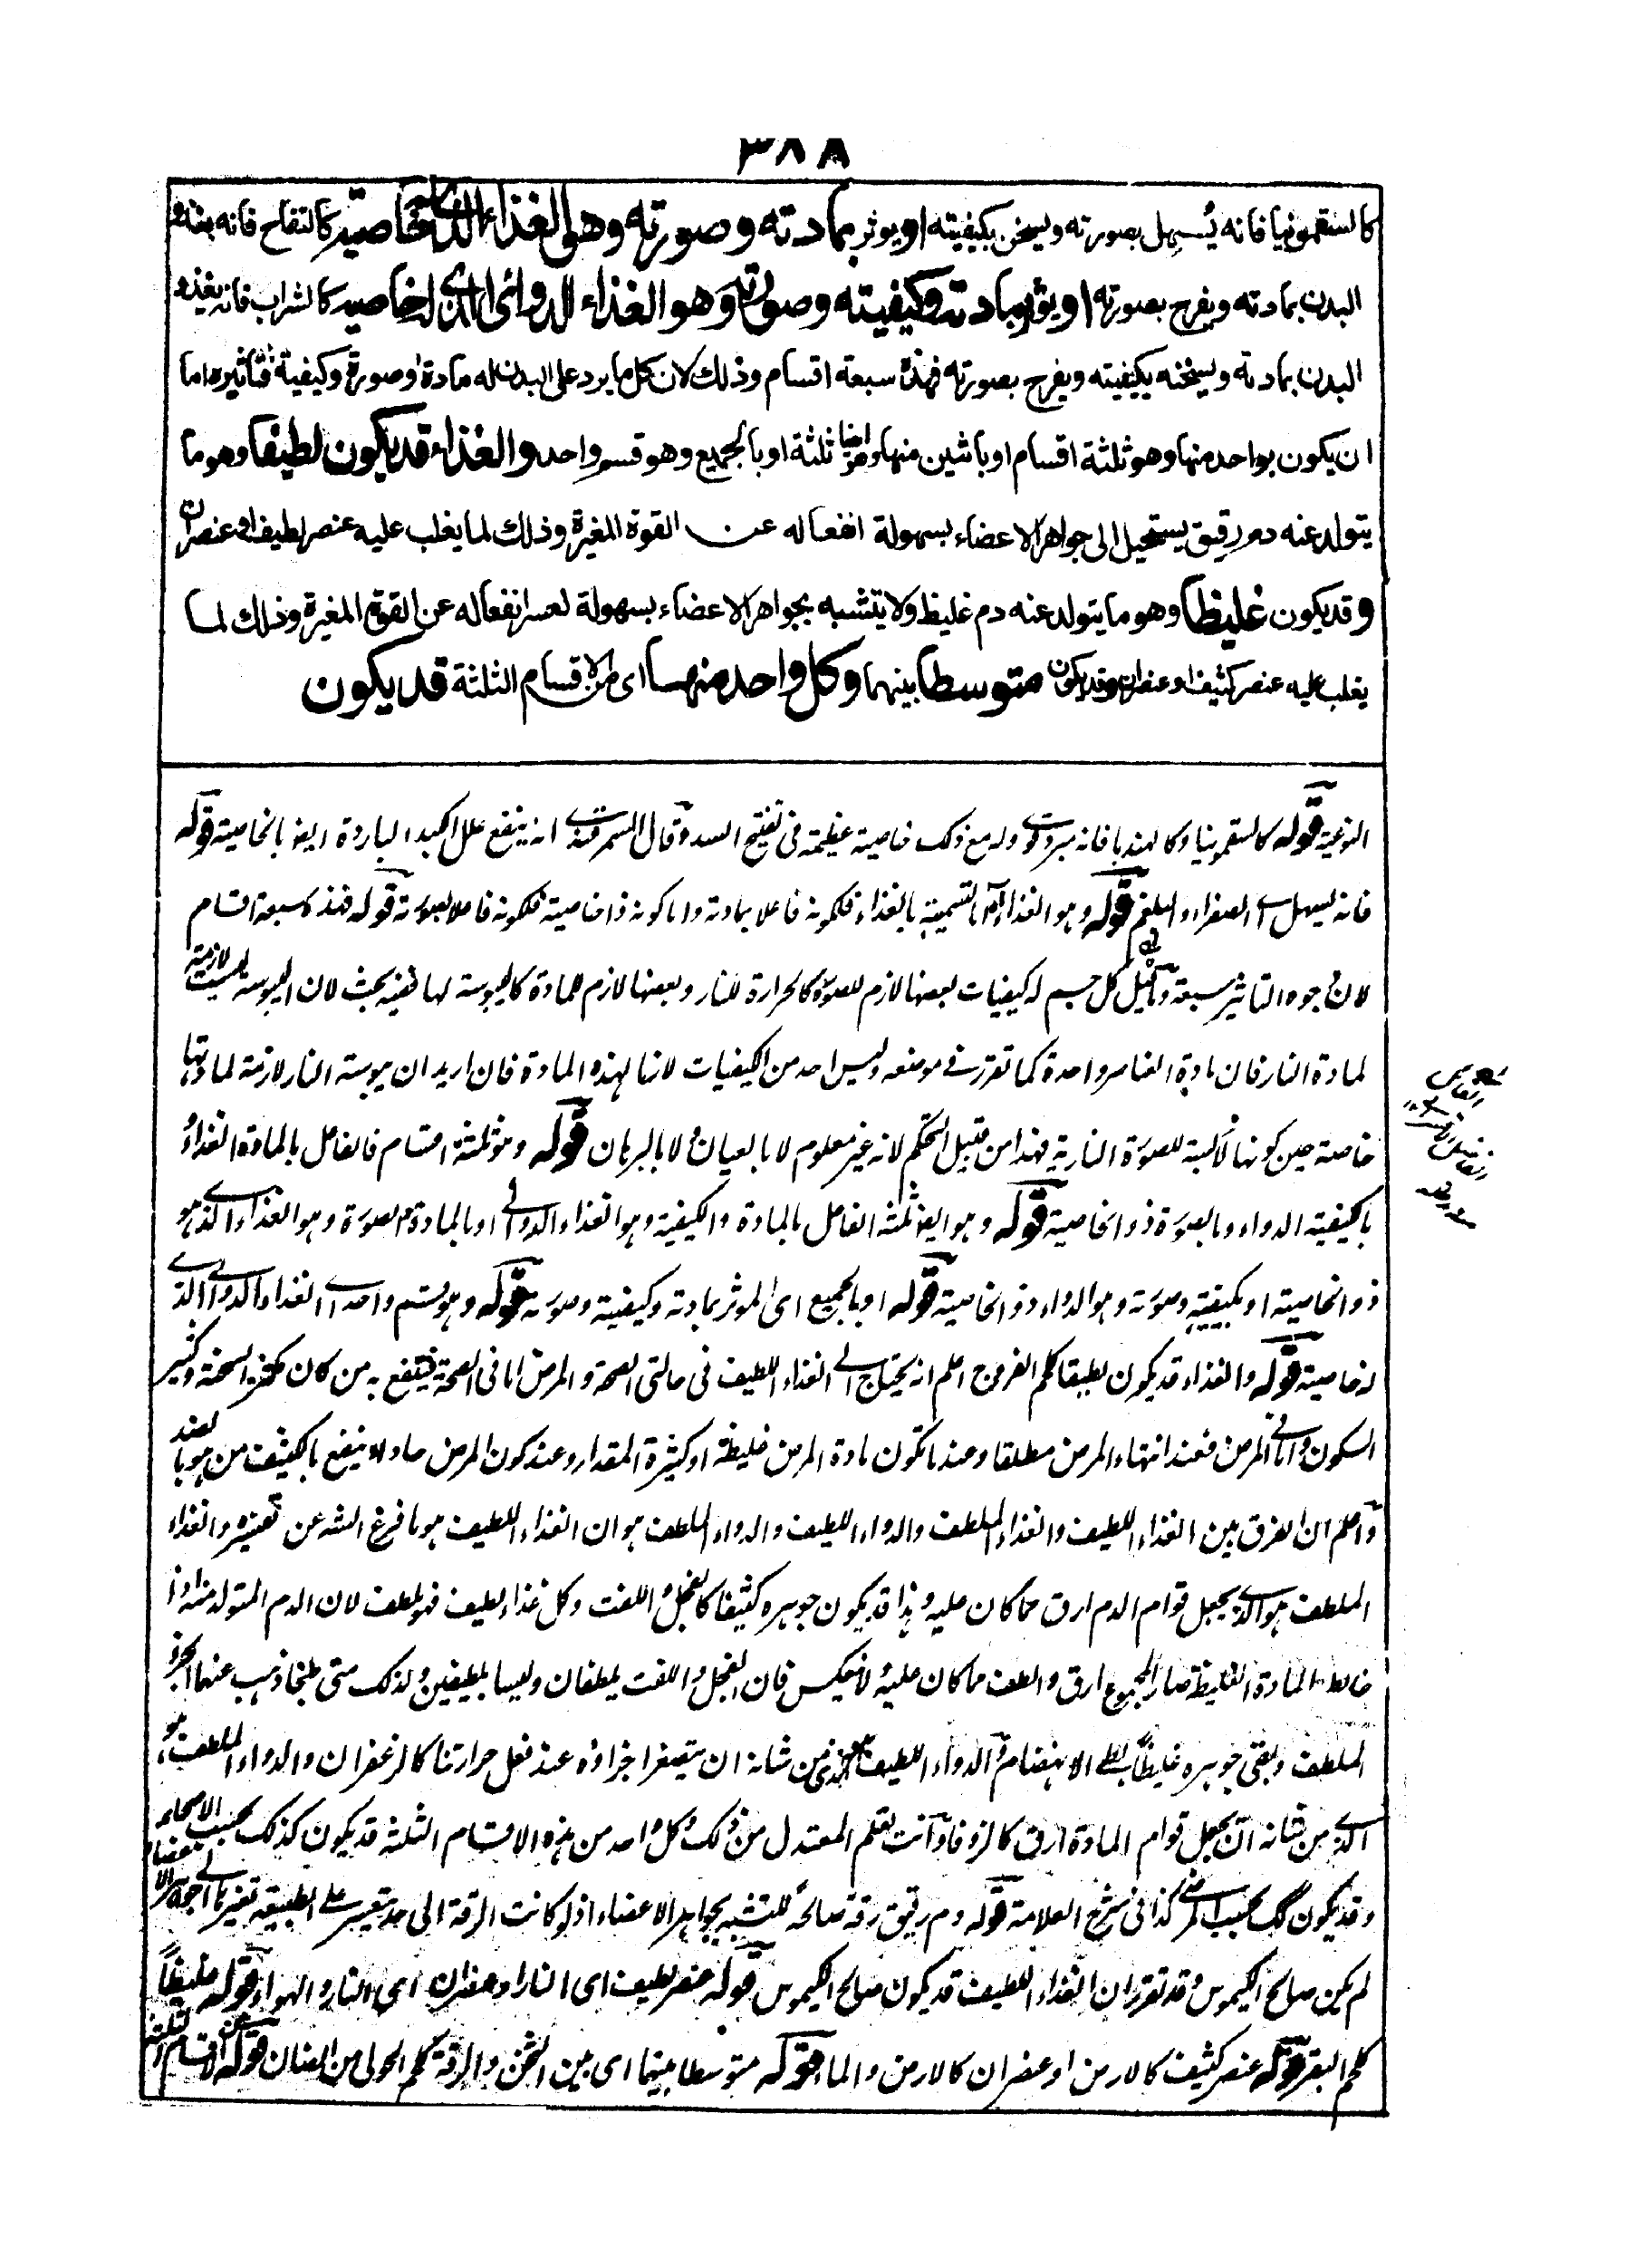 ٣٨٨
كالسقمونيا فانه يُسهل بصورته ويسخن بكيفيته او يوثر بمادته وصورته وهو الغذاء الذى له خاصية كالتفاح فانه يغذو
البدن بمادته ويفرح بصورته او يوثر بمادته وكيفيته وصورته وهو الغذاء الدوائى الذى له خاصية كالشراب فانه يغذو
البدن بمادته ويسخنه بكيفيته ويفرح بصورته فهذه سبعة اقسام وذلك لان كل ما يرد على البدن له مادة وصورة وكيفية فتاثيره اما
ان يكون بواحد منها وهو ثلثة اقسام او باثنين منها وهو ايضا ثلثة او بالجميع وهو قسم واحد والغذاء قد يكون لطيفا وهو ما
يتولد عنه دم رقيق يستحيل الى جواهر الاعضاء بسهولة انفعاله عن القوة المغيرة وذلك لما يغلب عليه عنصر لطيف او عنصران
وقد يكون غليظا وهو ما يتولد عنه دم غليظ ولا يتشبه بجواهر الاعضاء بسهولة لعسر انفعاله عن القوة المغيرة وذلك لما
يغلب عليه عنصر كثيف او عنصران وقد يكون متوسطا بينهما وكل واحد منها اى من الاقسام الثلثة قد يكون
النوعية قوله كالسقمونيا وكالهندبا فانه مبرد وله مع ذلك خاصية عظيمة فى تفتيح السدد وقال السمرقندى انه ينفع علل الكبد الباردة ايضا بالخاصية قوله
فانه يسهل اى الصفراء والبلغم قوله وهو الغذاء اما التسمية بالغذاء فلكونه فاعلا بمادته واما كونه ذا خاصية فلكونه فاعلا بصورته قوله فهذه سبعة اقسام
لان وجوه التاثير سبعة وقيل كل جسم له كيفيات بعضها لازم للصورة كالحرارة للنار وبعضها لازم للمادة كاليبوسة لها ففيه بحث لان اليبوسة ليست لازمة
لمادة النار فان مادة العناصر واحدة كما تقرر فى موضعه وليس احد من الكيفيات لازما لهذه المادة فان اريد ان يبوسة النار لازمة لمادتها
خاصة حين كونها لابسة للصورة النارية فهذا من قبيل التحكم لانه غير معلوم لا بالعيان ولا بالبرهان قوله وهو ثلثة اقسام فالفاعل بالمادة الغذاء و
بالكيفية الدواء وبالصورة ذو الخاصية قوله وهو ايضا ثلثة الفاعل بالمادة والكيفية وهو الغذاء الدوائى او بالمادة والصورة وهو الغذاء الذى هو
ذو الخاصية او بكيفيته وصورته وهو الدواء ذو الخاصية قوله او بالجميع اى الموثر بمادته وكيفيته وصورته قوله وهو قسم واحد اى الغذاء الدوائى الذى
له خاصية قوله والغذاء قد يكون لطيفا كلحم الفروج اعلم انه يحتاج الى الغذاء اللطيف فى حالتى الصحة والمرض اما فى الصحة فينتفع به من كان السحنة وكثير
السكون واما فى المرض فعند انتهاء المرض مطلقا وعند ما تكون مادة المرض غليظة او كثيرة المقدار وعند كون المرض حادا وينتفع بالكثيف من هو بالضد
واعلم ان الفرق بين الغذاء اللطيف والغذاء الملطف والدواء اللطيف والدواء الملطف هو ان الغذاء اللطيف هو ما فرغ الشه عن تفسيره والغذاء
الملطف هو الذى يجعل قوام الدم ارق مما كان عليه وهذا قد يكون جوهره كثيفا كالفجل واللفت وكل غذاء لطيف فهو ملطف لان الدم المتولد منه اذا
خالط المادة الغليظة صار المجموع ارق والطف مما كان عليه ولا ينعكس فان الفجل واللفت يلطفان وليسا بلطيفين ولذلك متى طبخا ذهب عنهما الجزء
الملطف وبقى جوهره غليظاً بطى الانهضام والدواء اللطيف من شانه ان يتصغر اجزاؤه عند فعل حرارتنا كالزعفران والدواء الملطف هو
الذى من شانه ان يجعل قوام المادة ارق كالزوفا وانت تعلم المعتدل من ذلك وكل واحد من هذه الاقسام الثلثة قد يكون كذلك بحسب الاصحاء
وقد يكون كك بحسب المرضى كذا فى شرح العلامة قوله دم رقيق رقة صالحة للتشبه بجواهر الاعضاء اذ لو كانت الرقة الى حد يعسر على الطبيعة تغييره الى جواهر الاعضاء
لم يكن صالح الكيموس وقد تقرر ان الغذاء اللطيف قد يكون صالح الكيموس قوله عنصر لطيف اى النار او عنصران اى النار والهواء قوله غليظاً
كلحم البقر قوله عنصر كثيف كالارض او عنصران كالارض والماء قوله متوسطا بينهما اى بين الثخن والرقة كلحم الحولى من الضان قوله من الاقسام الثلثة